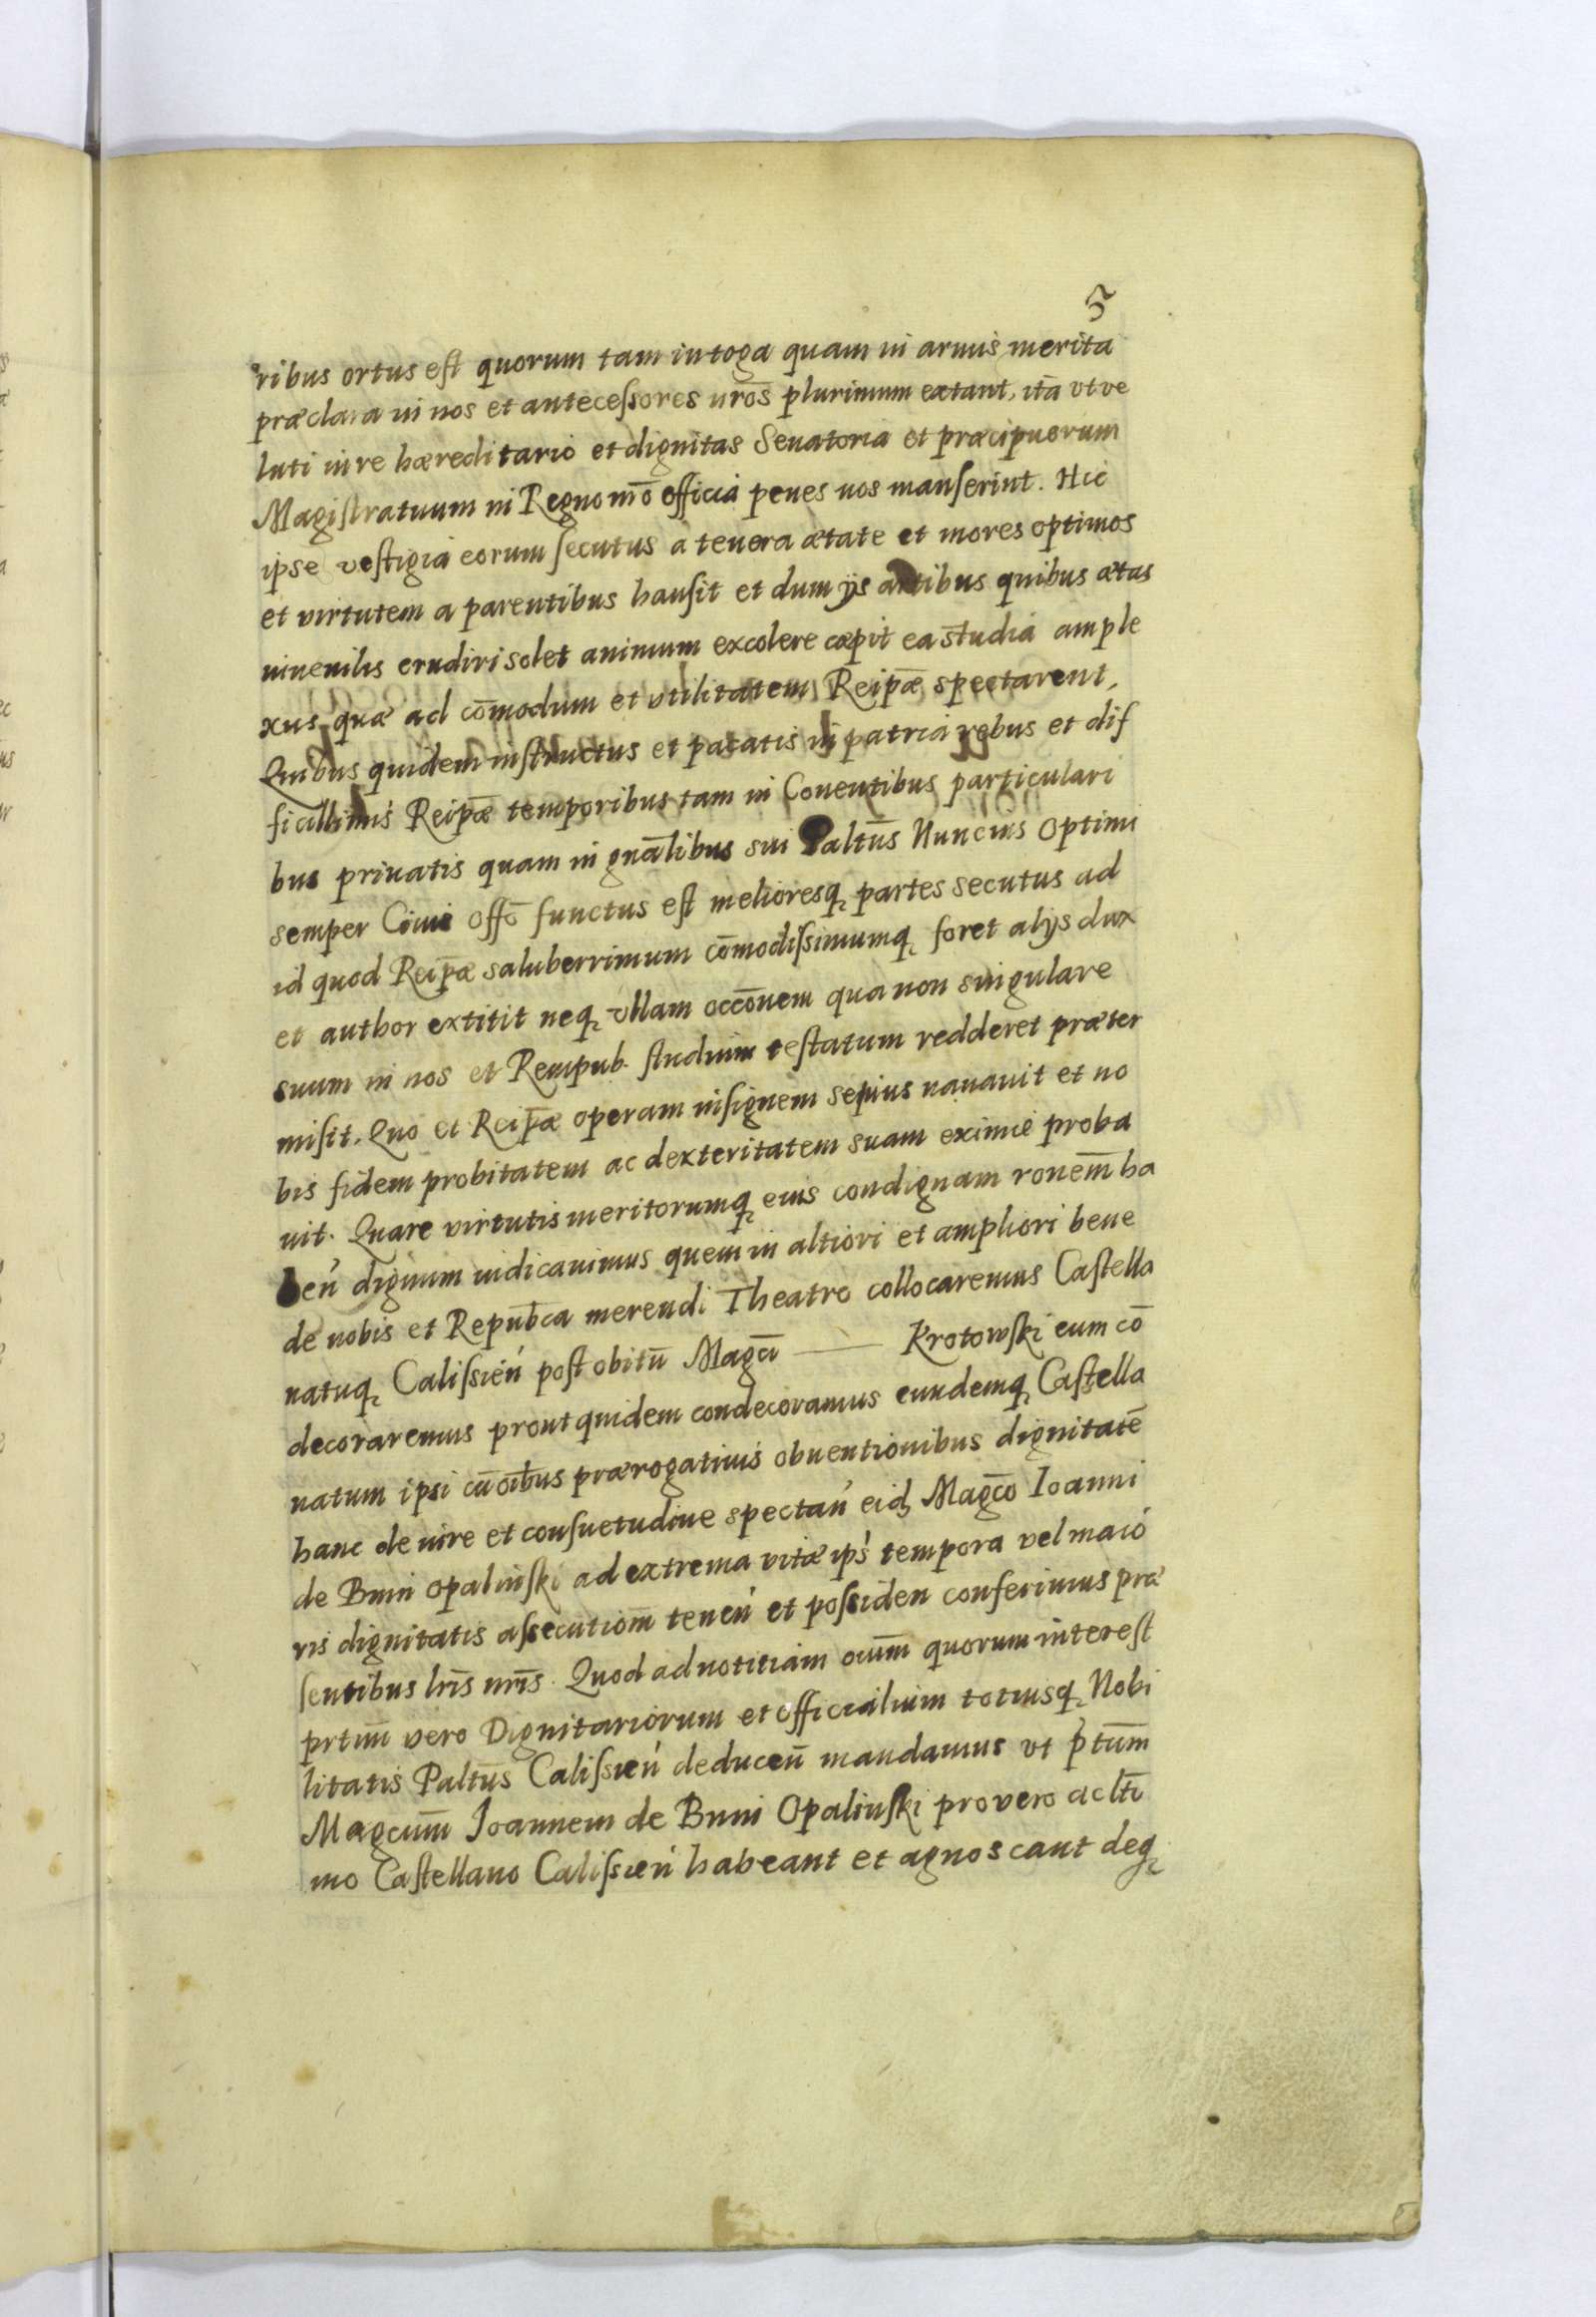 5
ribus ortus est quorum tam in toga quam in armis merita
præclara in nos et antecessores nrōs plurimum extant, ità vt ve
luti iure hæreditario et dignitas Senatoria et præcipuorum
Magistratuum in Regno nrō officia penes nos manserint. Hic
ipse vestigia eorum secutus a tenera ætate et mores optimos
et virtutem a parentibus hausit et dum ijs artibus quibus ætas
iuuenilis erudiri solet animum excolere cæpit ea studia ample
xus quæ ad cōmodum et vtilitatem Reipæ spectarent,
Quibus quidem instructus et pacatis in patria rebus et dif
ficillimis Reipæ temporibus tam in Conuentibus particulari
bus priuatis quam in gnālibus sui Paltūs Nuncius optimi
semper Ciuis offō functus est melioresq partes secutus ad
id quod Reipæ saluberrimum cōmodissimumq foret alijs dux
et author extitit neq vllam occōnem qua non singulare
suum in nos et Rempub. studium testatum redderet præter
misit. Quo et Reipæ operam insignem sepius nauauit et no
bis fidem probitatem ac dexteritatem suam eximie proba
uit. Quare virtutis meritorumq eius condignam ronēm ha
beń dignum iudicauimus quem in altiori et ampliori bene
de nobis et Repubca merendi Theatro collocaremus Castella
natuq Calissień post obitū Magci — Krotowski eum cō
decoraremus prout quidem condecoramus eundemq Castella
natum ipsi cū oibus prærogatiuis obuentionibus dignitatē
hanc de iure et consuetudine spectań eid Magco Ioanni
de Bnin Opalinski ad extrema vitæ ips tempora vel maio
ris dignitatis assecutiom̄ teneń et possiden conferimus præ
sentibus lris nris. Quod ad notitiam oium̄ quorum interest
prtim̄ vero Dignitariorum et officialium totiusq Nobi
litatis Paltūs Calissień deduceń mandamus vt ptum̄
Magcum̄ Joannem de Bnin Opalinski pro vero ac lti
mo Castellano Calissień habeant et agnoscant deq